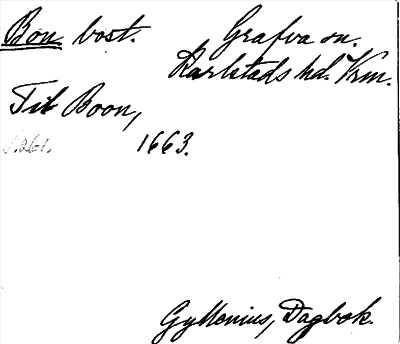 Bon bost. Grafva sn.
Karlstads hd. Vrm.
Till Boon,
s. 261. 1663.
Gyllenius, Dagbok.